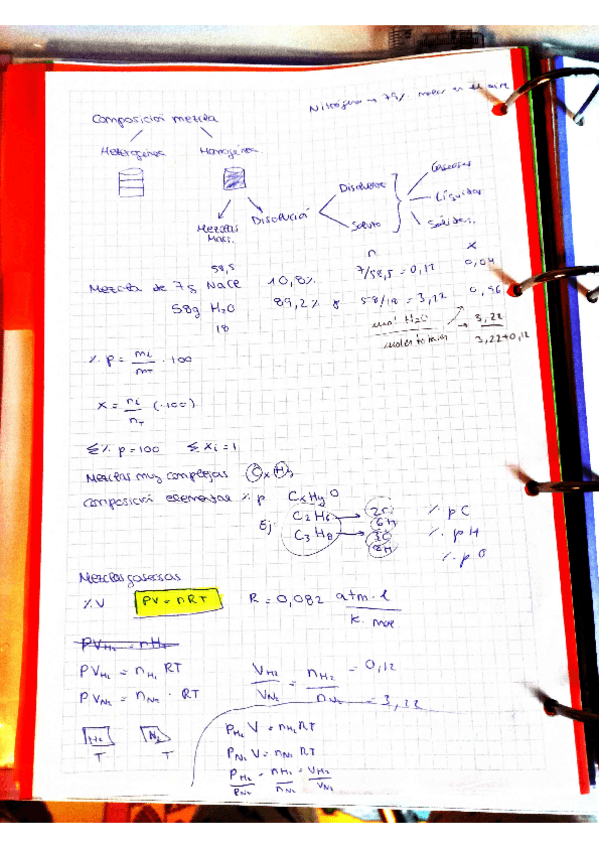 Nitrógeno → 79% molar en el aire
Composición mezcla
Heterogénea Homogénea
Disolución Disolvente Soluto Gaseosas Líquidas Sólidas.
Mezclas
58,5 n x
Mezcla de 7g NaCl 10,8% 7/58,5 = 0,12 0,04
58g H2O 89,2% 58/18 = 3,22 0,96
18
mol H2O → 3,22
3,22+0,12
% p = mi/mT · 100
x = ni/nT (·100)
Σ% p = 100 Σxi = 1
Mezclas muy complejas CxHy
Composición elemental % p CxHyO
Ej: C2H6 → 2C 6H % p C
C3H8 → 3C 8H % p H
% p O
Mezclas gaseosas
% V PV = nRT R = 0,082 atm·l / K·mol
PVH2 = nH2 RT
PVN2 = nN2 · RT
VH2/VN2 = nH2/nN2 = 0,12 = 3,22
H2 N2
T T
PH2 V = nH2 RT
PN2 V = nN2 RT
PH2/PN2 = nH2/nN2 = VH2/VN2